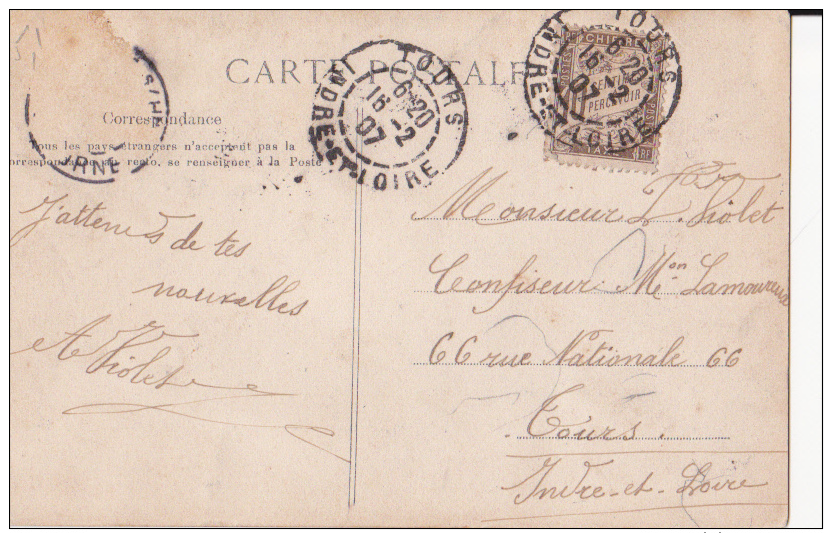 CARTE POSTALE
Correspondance
Tous les pays étrangers n'acceptent pas la
correspondance au recto, se renseigner à la Poste
J'attends de tes
nouvelles
A Violet
TOURS
6-20
16 -2
07
INDRE-ET-LOIRE
TOURS
6-20
16 -2
07
INDRE-ET-LOIRE
CHIFFRE
POSTES
CENTIMES
PERCEVOIR
TAXE
RF
ARNE
Monsieur L. Violet
Confiseur Mon Lamoureux
66 rue Nationale 66
Tours.
Indre-et-Loire